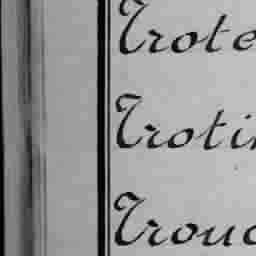 Trote
Troti
Trouc